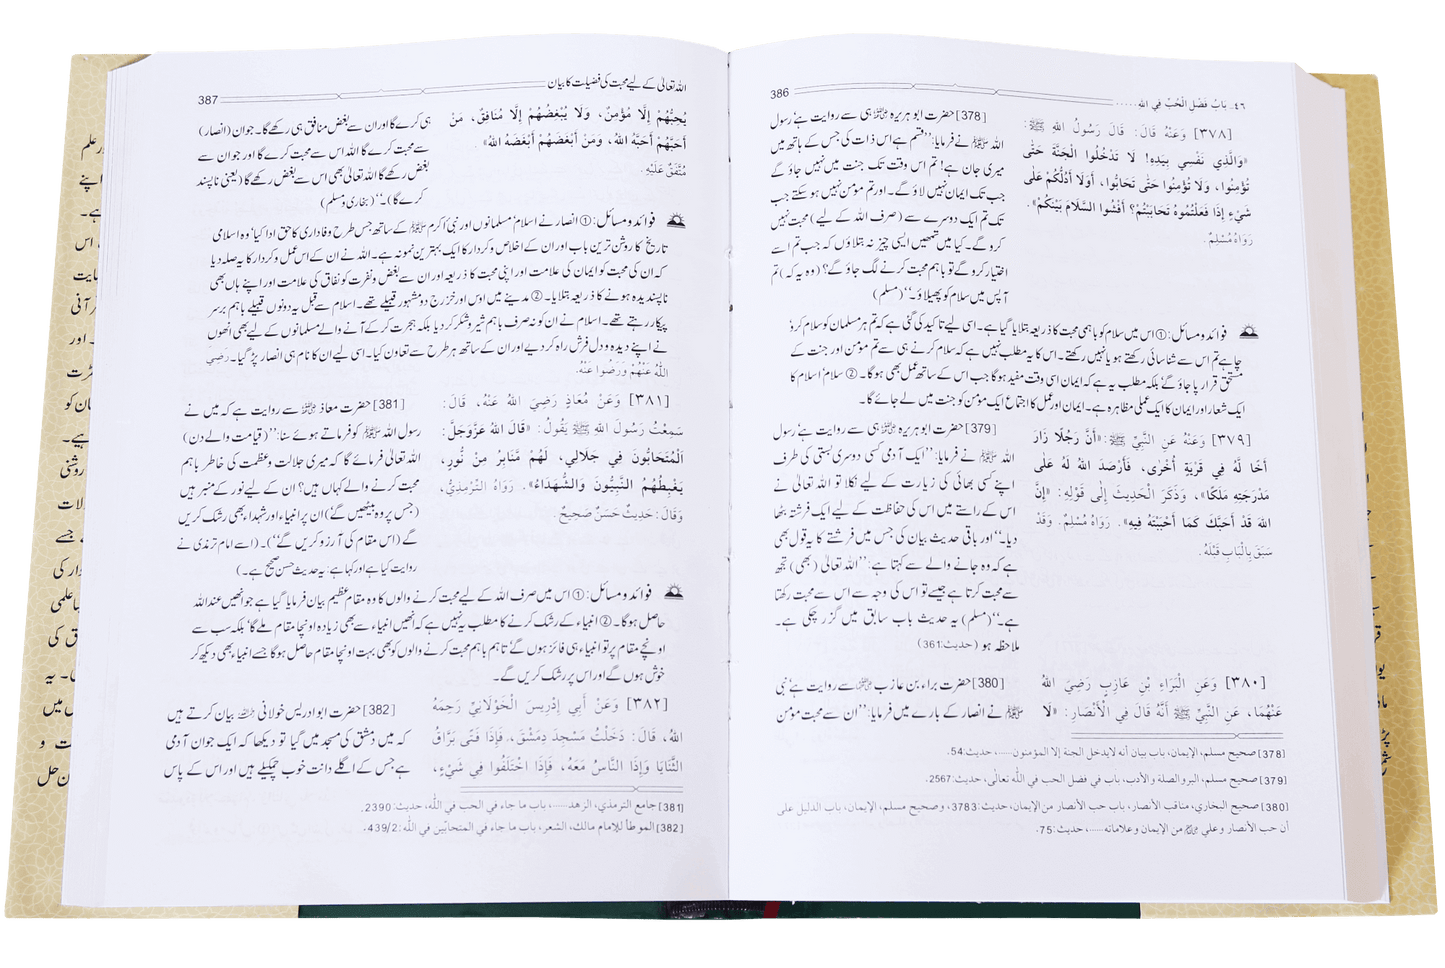 386
٤٦۔ بَابُ فَضْلِ الْحُبِّ فِي اللهِ .....
[٣٧٨] وَعَنْهُ قَالَ: قَالَ رَسُولُ اللهِ ﷺ:
«وَالَّذِي نَفْسِي بِيَدِهِ! لَا تَدْخُلُوا الْجَنَّةَ حَتَّى
تُؤْمِنُوا، وَلَا تُؤْمِنُوا حَتَّى تَحَابُّوا، أَوَلَا أَدُلُّكُمْ عَلَى
شَيْءٍ إِذَا فَعَلْتُمُوهُ تَحَابَبْتُمْ؟ أَفْشُوا السَّلَامَ بَيْنَكُمْ».
رَوَاهُ مُسْلِمٌ.
[378] حضرت ابو ہریرہ ؓ ہی سے روایت ہے، رسول
اللہ ﷺ نے فرمایا: ’’قسم ہے اس ذات کی جس کے ہاتھ میں
میری جان ہے! تم اس وقت تک جنت میں نہیں جاؤ گے
جب تک ایمان نہیں لاؤ گے۔ اور تم مومن نہیں ہو سکتے جب
تک تم ایک دوسرے سے (صرف اللہ کے لیے) محبت نہیں
کرو گے۔ کیا میں تمھیں ایسی چیز نہ بتلاؤں کہ جب تم اسے
اختیار کرو گے تو باہم محبت کرنے لگ جاؤ گے؟ (وہ یہ کہ) تم
آپس میں سلام کو پھیلاؤ۔‘‘ (مسلم)
فوائد و مسائل: ① اس میں سلام کو باہمی محبت کا ذریعہ بتلایا گیا ہے۔ اسی لیے تاکید کی گئی ہے کہ تم ہر مسلمان کو سلام کرو،
چاہے تم اس سے شناسائی رکھتے ہو یا نہیں رکھتے۔ اس کا یہ مطلب نہیں ہے کہ سلام کرنے ہی سے تم مومن اور جنت کے
مستحق قرار پا جاؤ گے بلکہ مطلب یہ ہے کہ ایمان اسی وقت مفید ہوگا جب اس کے ساتھ عمل بھی ہوگا۔ ② سلام، اسلام کا
ایک شعار اور ایمان کا ایک عملی مظاہرہ ہے۔ ایمان اور عمل کا اجتماع ایک مومن کو جنت میں لے جائے گا۔
[٣٧٩] وَعَنْهُ عَنِ النَّبِيِّ ﷺ: «أَنَّ رَجُلًا زَارَ
أَخًا لَهُ فِي قَرْيَةٍ أُخْرَى، فَأَرْصَدَ اللهُ لَهُ عَلَى
مَدْرَجَتِهِ مَلَكًا»، وَذَكَرَ الْحَدِيثَ إِلَى قَوْلِهِ: «إِنَّ
اللهَ قَدْ أَحَبَّكَ كَمَا أَحْبَبْتَهُ فِيهِ». رَوَاهُ مُسْلِمٌ. وَقَدْ
سَبَقَ بِالْبَابِ قَبْلَهُ.
[379] حضرت ابو ہریرہ ؓ ہی سے روایت ہے، رسول
اللہ ﷺ نے فرمایا: ’’ایک آدمی کسی دوسری بستی کی طرف
اپنے کسی بھائی کی زیارت کے لیے نکلا تو اللہ تعالیٰ نے
اس کے راستے میں اس کی حفاظت کے لیے ایک فرشتہ بٹھا
دیا۔‘‘ اور باقی حدیث بیان کی جس میں فرشتے کا یہ قول بھی
ہے کہ وہ جانے والے سے کہتا ہے: ’’اللہ تعالیٰ (بھی) تجھ
سے محبت کرتا ہے جیسے تو اس کی وجہ سے اس سے محبت رکھتا
ہے۔‘‘ (مسلم) یہ حدیث باب سابق میں گزر چکی ہے۔
ملاحظہ ہو (حدیث: 361)
[٣٨٠] وَعَنِ الْبَرَاءِ بْنِ عَازِبٍ رَضِيَ اللهُ
عَنْهُمَا، عَنِ النَّبِيِّ ﷺ أَنَّهُ قَالَ فِي الْأَنْصَارِ: «لَا
[380] حضرت براء بن عازب ؓ سے روایت ہے، نبی
ﷺ نے انصار کے بارے میں فرمایا: ’’ان سے محبت مومن
[378] صحيح مسلم، الإيمان، باب بيان أنه لا يدخل الجنة إلا المؤمنون......، حديث: 54.
[379] صحيح مسلم، البر والصلة والأدب، باب في فضل الحب في الله تعالى، حديث: 2567.
[380] صحيح البخاري، مناقب الأنصار، باب حب الأنصار من الإيمان، حديث: 3783، وصحيح مسلم، الإيمان، باب الدليل على
أن حب الأنصار وعلي ؓ من الإيمان وعلاماته......، حديث: 75.
اللہ تعالیٰ کے لیے محبت کی فضیلت کا بیان
387
يُحِبُّهُمْ إِلَّا مُؤْمِنٌ، وَلَا يُبْغِضُهُمْ إِلَّا مُنَافِقٌ، مَنْ
أَحَبَّهُمْ أَحَبَّهُ اللهُ، وَمَنْ أَبْغَضَهُمْ أَبْغَضَهُ اللهُ».
مُتَّفَقٌ عَلَيْهِ.
ہی کرے گا اور ان سے بغض منافق ہی رکھے گا۔ جو ان (انصار)
سے محبت کرے گا اللہ اس سے محبت کرے گا اور جو ان سے
بغض رکھے گا اللہ تعالیٰ بھی اس سے بغض رکھے گا (یعنی ناپسند
کرے گا)۔‘‘ (بخاری و مسلم)
فوائد و مسائل: ① انصار نے اسلام، مسلمانوں اور نبی اکرم ﷺ کے ساتھ جس طرح وفاداری کا حق ادا کیا، وہ اسلامی
تاریخ کا روشن ترین باب اور ان کے اخلاص و کردار کا ایک بہترین نمونہ ہے۔ اللہ نے ان کے اس عمل و کردار کا یہ صلہ دیا
کہ ان کی محبت کو ایمان کی علامت اور اپنی محبت کا ذریعہ اور ان سے بغض و نفرت کو نفاق کی علامت اور اپنے ہاں بھی
ناپسندیدہ ہونے کا ذریعہ بتلایا۔ ② مدینے میں اوس اور خزرج دو مشہور قبیلے تھے۔ اسلام سے قبل یہ دونوں قبیلے باہم برسر
پیکار رہتے تھے۔ اسلام نے ان کو نہ صرف باہم شیر و شکر کر دیا بلکہ ہجرت کر کے آنے والے مسلمانوں کے لیے بھی انھوں
نے اپنے دیدہ و دل فرش راہ کر دیے اور ان کے ساتھ ہر طرح سے تعاون کیا۔ اسی لیے ان کا نام ہی انصار پڑ گیا۔ رَضِيَ
اللهُ عَنْهُمْ وَرَضُوا عَنْهُ.
[٣٨١] وَعَنْ مُعَاذٍ رَضِيَ اللهُ عَنْهُ، قَالَ:
سَمِعْتُ رَسُولَ اللهِ ﷺ يَقُولُ: «قَالَ اللهُ عَزَّوَجَلَّ:
اَلْمُتَحَابُّونَ فِي جَلَالِي، لَهُمْ مَنَابِرُ مِنْ نُورٍ،
يَغْبِطُهُمُ النَّبِيُّونَ وَالشُّهَدَاءُ». رَوَاهُ التِّرْمِذِيُّ،
وَقَالَ: حَدِيثٌ حَسَنٌ صَحِيحٌ.
[381] حضرت معاذ ؓ سے روایت ہے کہ میں نے
رسول اللہ ﷺ کو فرماتے ہوئے سنا: ’’(قیامت والے دن)
اللہ تعالیٰ فرمائے گا کہ میری جلالت و عظمت کی خاطر باہم
محبت کرنے والے کہاں ہیں؟ ان کے لیے نور کے منبر ہیں
(جس پر وہ بیٹھیں گے) ان پر انبیاء اور شہداء بھی رشک کریں
گے (اس مقام کی آرزو کریں گے‘‘)۔ (اسے امام ترمذی نے
روایت کیا ہے اور کہا ہے: یہ حدیث حسن صحیح ہے۔)
فوائد و مسائل: ① اس میں صرف اللہ کے لیے محبت کرنے والوں کا وہ مقام عظیم بیان فرمایا گیا ہے جو انھیں عند اللہ
حاصل ہوگا۔ ② انبیاء کے رشک کرنے کا مطلب یہ نہیں ہے کہ انھیں انبیاء سے بھی زیادہ اونچا مقام ملے گا، بلکہ سب سے
اونچے مقام پر تو انبیاء ہی فائز ہوں گے، تاہم باہم محبت کرنے والوں کو بھی بہت اونچا مقام حاصل ہوگا جسے انبیاء بھی دیکھ کر
خوش ہوں گے اور اس پر رشک کریں گے۔
[٣٨٢] وَعَنْ أَبِي إِدْرِيسَ الْخَوْلَانِيِّ رَحِمَهُ
اللهُ، قَالَ: دَخَلْتُ مَسْجِدَ دِمَشْقَ، فَإِذَا فَتًى بَرَّاقُ
الثَّنَايَا وَإِذَا النَّاسُ مَعَهُ، فَإِذَا اخْتَلَفُوا فِي شَيْءٍ،
[382] حضرت ابو ادریس خولانی ؒ بیان کرتے ہیں
کہ میں دمشق کی مسجد میں گیا تو دیکھا کہ ایک جوان آدمی
ہے جس کے اگلے دانت خوب چمکیلے ہیں اور اس کے پاس
[381] جامع الترمذي، الزهد......، باب ما جاء في الحب في الله، حديث: 2390.
[382] الموطأ للإمام مالك، الشعر، باب ما جاء في المتحابين في الله: 439/2.